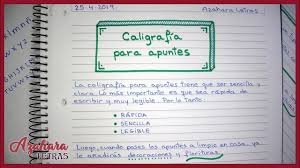 25-4-2019.
Azahara Letras
Caligrafía
para apuntes
La caligrafía para apuntes tiene que ser sencilla y
clara. Lo más importante es que sea rápida de
escribir y muy legible. Por lo tanto:
• RÁPIDA
• SENCILLA
• LEGIBLE
Luego, cuando pases los apuntes a limpio en casa, ya
le añadirás decoraciones y florituras.
Azahara
LETRAS